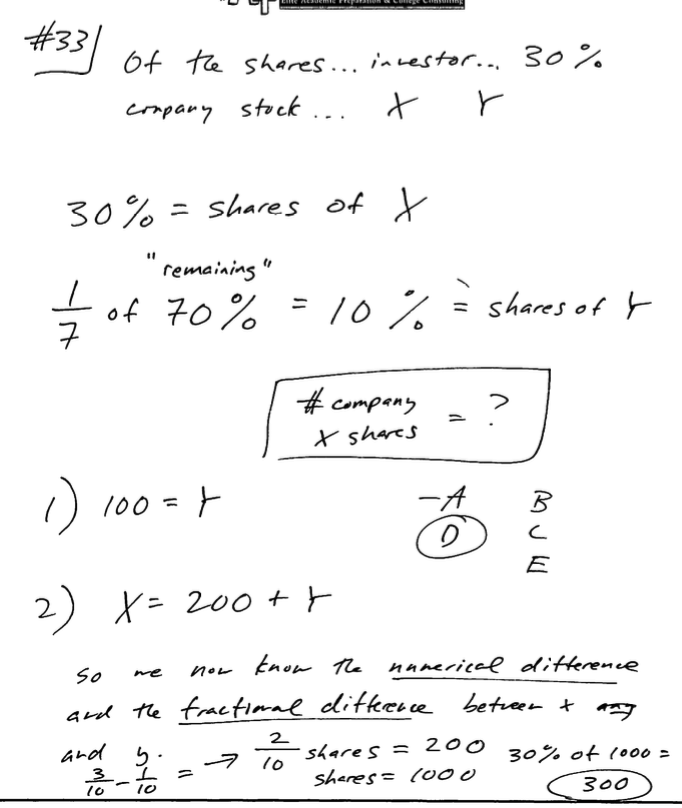 Elite Academic Preparation & College Consulting
#33
Of the shares... investor... 30%
company stock ... X Y
30% = shares of X
"remaining"
1/7 of 70% = 10% = shares of Y
# company X shares = ?
1) 100 = Y
-A B
D C
E
2) X = 200 + Y
so we now know the numerical difference
and the fractional difference between x any
and y.
3/10 - 1/10 = → 2/10 shares = 200 30% of 1000 =
shares = 1000 300